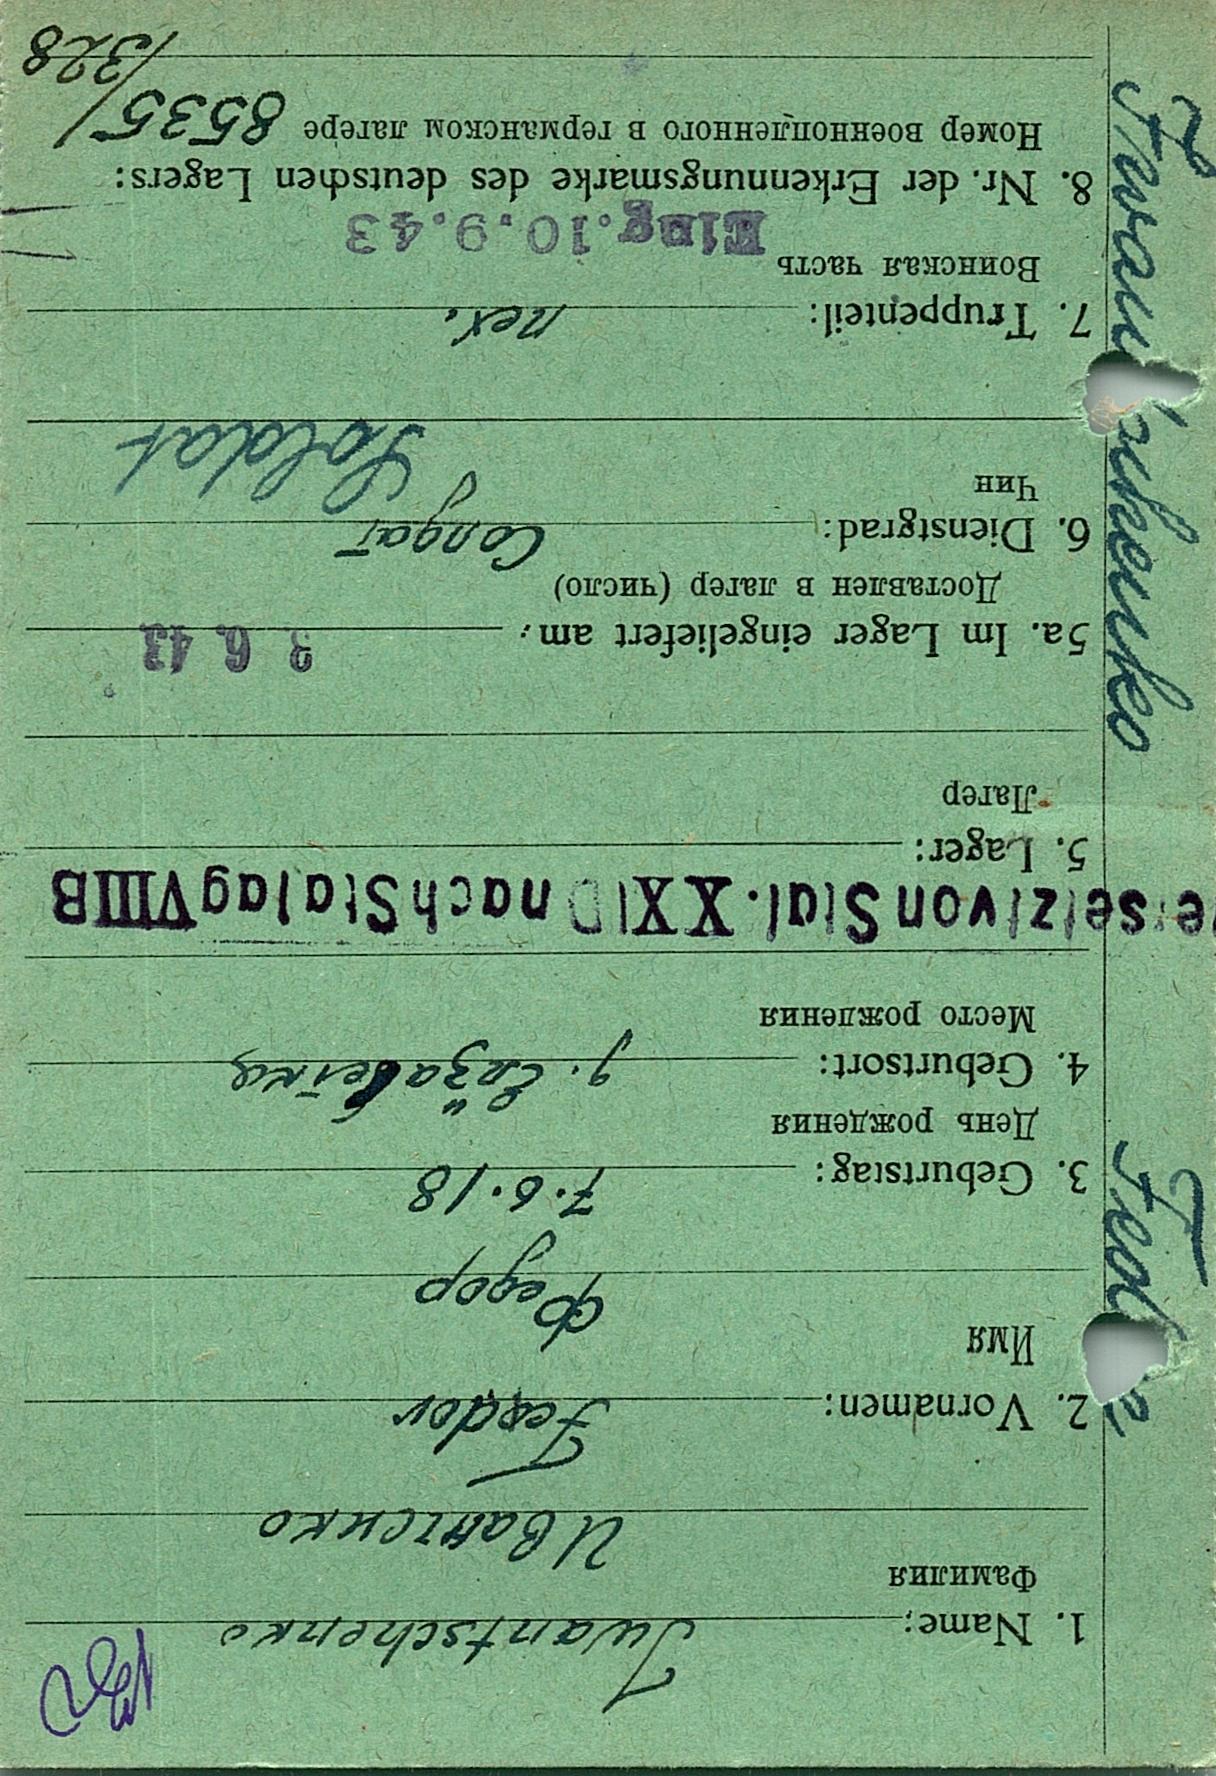 1. Name: Iwantschenko
Фамилия
Иванченко
2. Vornamen: Feodor
Имя
Федор
3. Geburtstag: 7.6.18
День рождения
4. Geburtsort:
Место рождения
versetzt von Stal. XXI D nach Stalag VIIIB
5. Lager:
Лагер
5a. Im Lager eingeliefert am: 3. 6. 43
Доставлен в лагер (число)
6. Dienstgrad: Солдат
Чин
Soldat
7. Truppenteil: пех.
Воинская часть
Eing. 10. 9. 43
8. Nr. der Erkennungsmarke des deutschen Lagers:
Номер военнопленного в германском лагере 8535/
/328